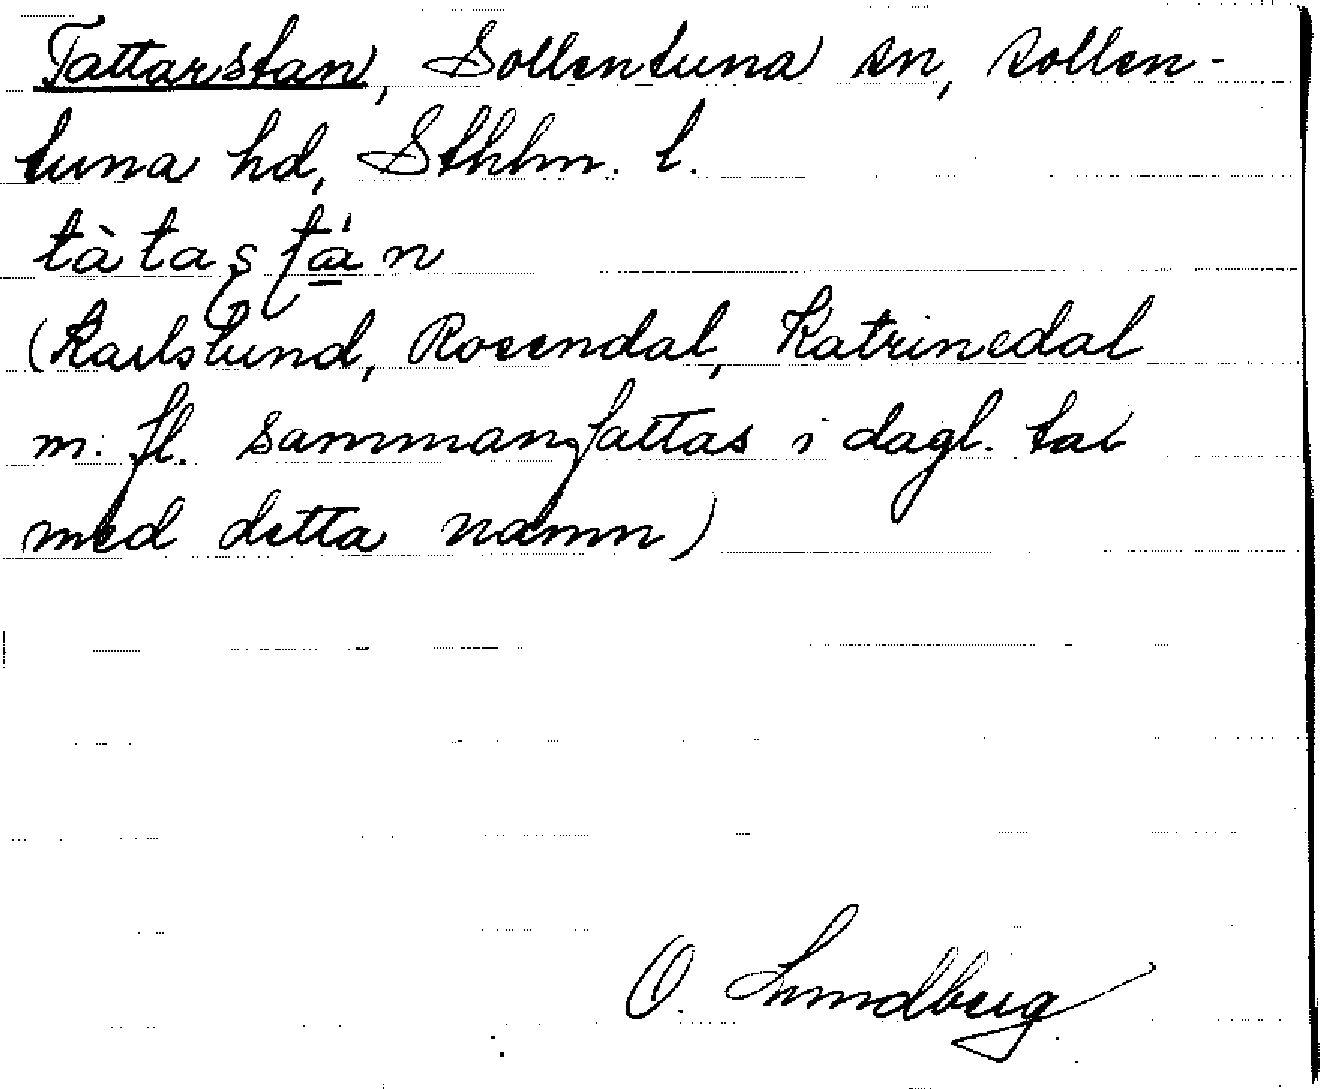 Tattarstan, Sollentuna sn, Sollen-
tuna hd, Sthlm. l.
tàtaʂʈán
(Karlslund, Rosendal, Katrinedal
m. fl. sammanfattas i dagl. tal
med detta namn)
O. Lundberg